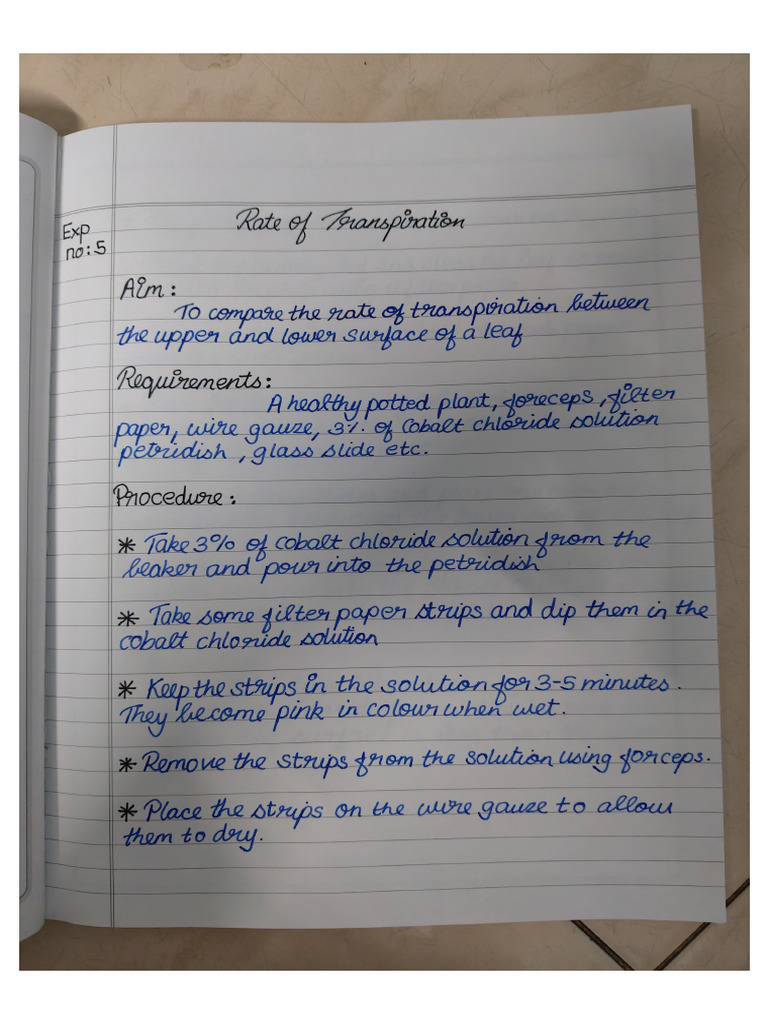 Exp
no: 5
Rate of Transpiration
Aim:
To compare the rate of transpiration between
the upper and lower surface of a leaf
Requirements:
A healthy potted plant, foreceps, filter
paper, wire gauze, 3% of cobalt chloride solution
petridish, glass slide etc.
Procedure:
* Take 3% of cobalt chloride solution from the
beaker and pour into the petridish
* Take some filter paper strips and dip them in the
cobalt chloride solution
* Keep the strips in the solution for 3-5 minutes.
They become pink in colour when wet.
* Remove the strips from the solution using forceps.
* Place the strips on the wire gauze to allow
them to dry.